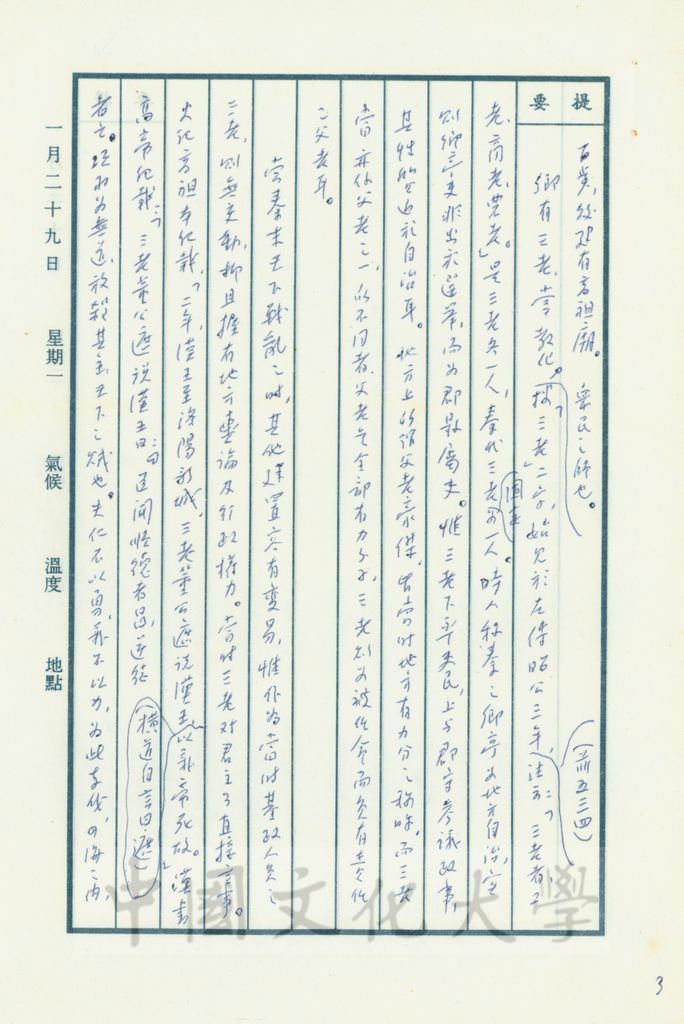 提要
百歲,後建有高祖廟。 眾民之師也。
(前五三四)
鄉有三老,掌教化。「按『三老』二字,始見於左傳昭公三年,註云:「三老者,工
老、商老、農老。」是三老共人,秦代三老為一人。時人稱秦之鄉亭為地方自治,實
則鄉亭吏非出於選舉,而為郡縣屬吏。惟三老下率吏民,上與郡守參議政事,
其性能少近於自治耳。地方上所謂父老豪傑,皆當時地方有力分子之稱呼,而三老
當亦係父老之一,所不同者,父老是全部有力分子,三老則為被任命而負有責任
之父老耳。
當秦末天下戰亂之時,其他建置容有變易,惟作為當時基政人員之
三老,則無更動,抑且握有地方輿論及行政權力。當時三老對君主可直接言事。
史記高祖本紀載:「二年,漢王至洛陽新城,三老董公遮說漢王以義帝死故。」漢書
高帝紀載:「三老董公遮說漢王曰:『臣聞順德者昌,逆德
(橫道自言曰遮)
者亡。項羽為無道,放殺其主,天下之賊也。夫仁不以勇,義不以力,為此東伐,四海之內,
一月二十九日 星期一 氣候 溫度 地點
中國文化大學
3